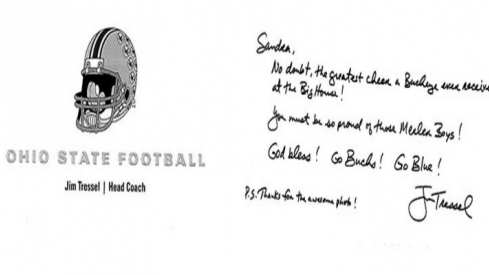 OHIO STATE FOOTBALL
Jim Tressel | Head Coach
Sandra,
No doubt, the greatest cheer a Buckeye ever receive
at the Big House!
You must be so proud of those Merlen Boys!
God bless! Go Bucks! Go Blue!
P.S. Thanks for the awesome photo!
Jim Tressel